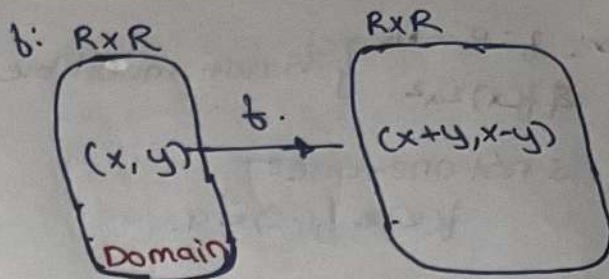 f: R×R
R×R
f.
(x, y)
(x+y, x-y)
Domain